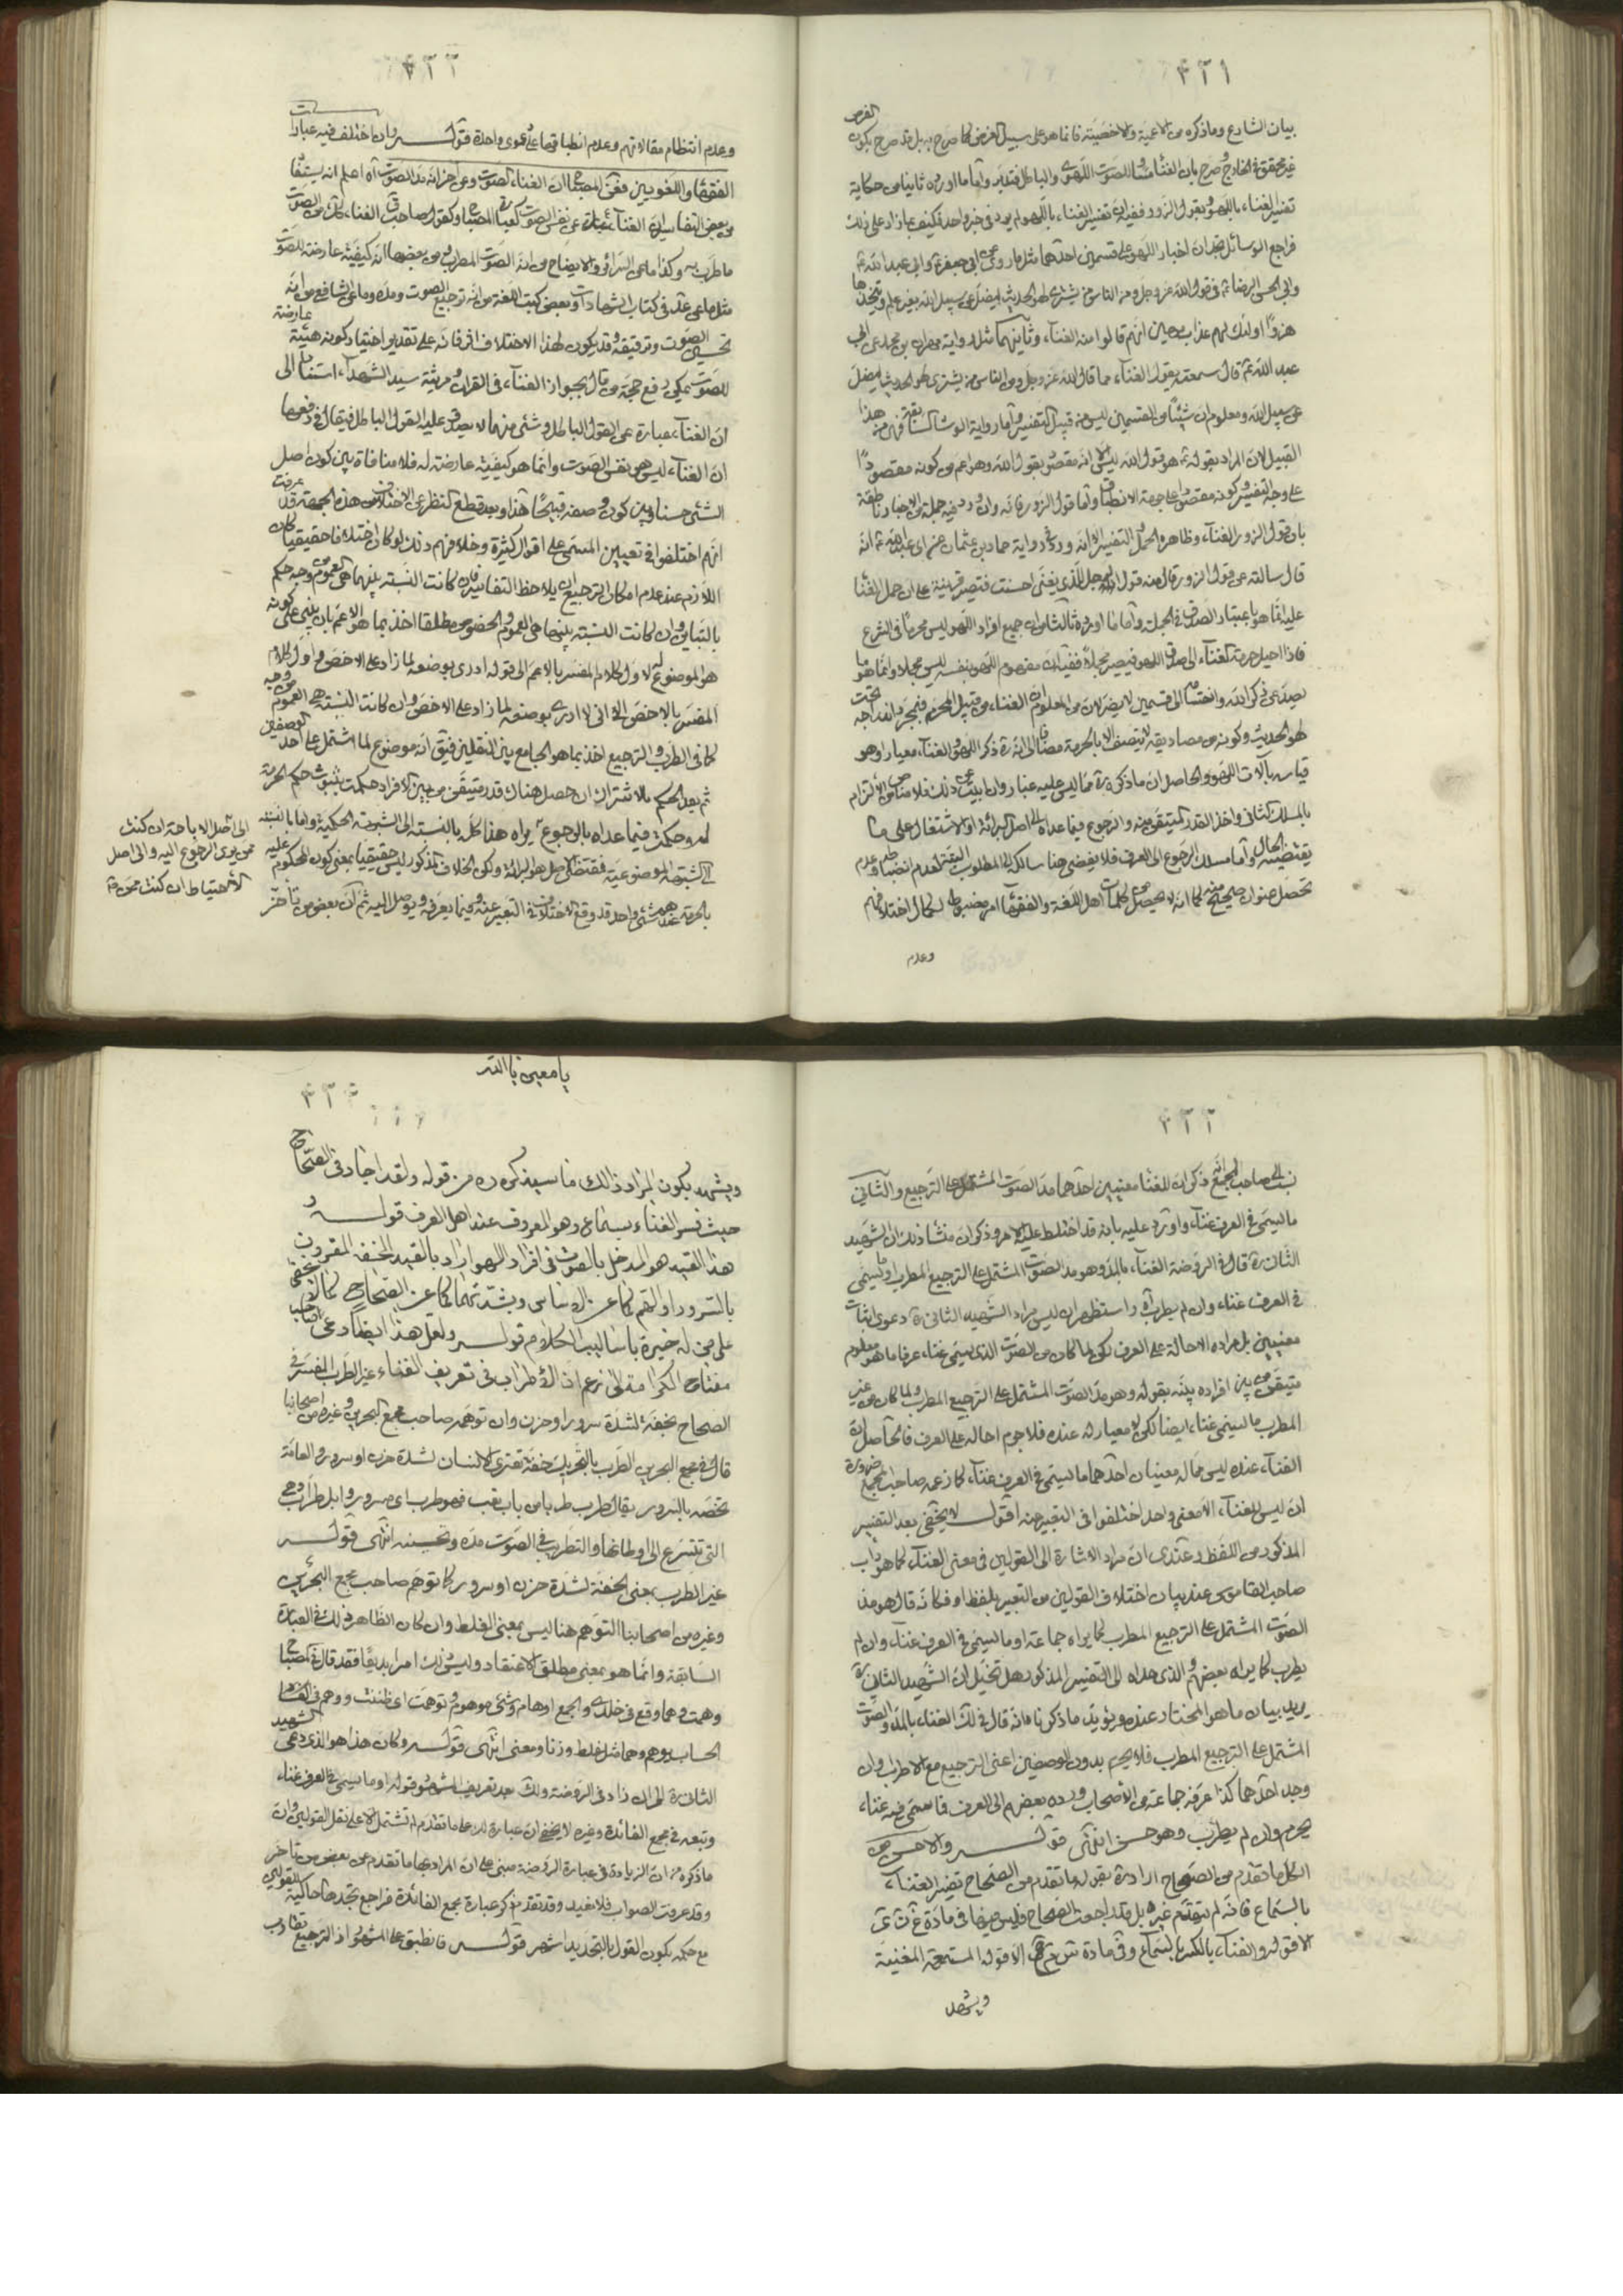 ٤٢١
بيان الشارع وما ذكره من الاعمية والاخصية فانما هو على سبيل الفرض كما صرح به بل قد صرح بكون الفرض
غير محقق في الخارج وصرح بان الغناء للصوت اللهوى والباطل فتدبر وامّا ما اورده ثانيا من حكاية
تفسير الغناء باللهو وبقول الزور ففيه ان تفسير الغناء باللهو لم يرد في خبر واحد فكيف بما زاد على ذلك
فراجع الوسائل تجد ان اخبار اللهو على قسمين احدهما مثل ما روى عن ابى جعفر ع وابى عبد الله ع
وابى الحسن الرضا ع في قول الله عز وجل ومن الناس من يشترى لهو الحديث ليضل عن سبيل الله بغير علم ويتخذها
هزوًا اولئك لهم عذاب مهين انهم قالوا منه الغناء وثانيهما مثل رواية مهران بن محمد عن ابى
عبد الله ع قال سمعته يقول الغناء مما قال الله عز وجل ومن الناس من يشترى لهو الحديث ليضل
عن سبيل الله ومعلوم ان شيئا من القسمين ليس من قبيل التفسير وامّا رواية الوشا السابقة فهى من هذا
القبيل لان المراد بقوله ع هو قول الله ليس الا انه مقصود بقول الله وهو اعم من كونه مقصودًا
على وجه التفسير وكونه مقصودا على جهة الانطباق وامّا قول الزور فانه وان ورد فيه جملة من الاخبار ناطقة
بان قول الزور الغناء وظاهره الحمل التفسير الا انه ورد في رواية حماد بن عثمان عن ابى عبد الله ع انه
قال سالته عن قول الزور قال منه قول الرجل للذى يغنى احسنت فتصير قرينة على ان حمل الغناء
عليه انما هو باعتبار الصدق في الجملة وامّا ما اورده ثالثا من ان جميع افراد اللهو ليس محرمًا في الشرع
فاذا احيل حرمة الغناء الى صدق اللهو فيصير مجملا ففيه ان مفهوم اللهو بنفسه ليس مجملا وانما هو ما
يصد عن ذكر الله وانقسامه الى قسمين لا يضر لان من المعلوم ان الغناء من قبيل المحرم فبمجرد اندراجه تحت
لهو الحديث وكونه من مصاديقه لا يتصف الا بالحرمة مضافا الى انه ره ذكر اللهو والغناء معيارا وهو
قياسه بآلات اللهو والحاصل ان ما ذكره ره مما ليس عليه غبار وان ابيت عن ذلك فلا مناص من الالتزام
بالمسلك الثانى واخذ القدر المتيقن منه والرجوع فيما عداه الى اصل البرائة او الاشتغال على ما
يقتضيه الحال وامّا مسلك الرجوع الى العرف فلا يفضى هنا سالكه الى المطلوب البتة لعدم انضباطه وعدم
تحصل عنوان صحيح منه كما انه لا يحصل من كلمات اهل اللغة والفقهاء امر مضبوط لكمال اختلافهم
وعدم
٤٢٢
وعدم انتظام مقالاتهم وعدم انطباقها على محوى واحدة قولـــه وان اختلف فيه عبارات
الفقهاء واللغويين فعن المصباح ان الغناء الصوت وعن اخر انه مد الصوت آه اعلم انه يستفاد
من بعض التفاسير ان الغناء عبارة عن نفس الصوت كعبارة المصباح وكقول صاحب ق الغناء ككساء من الصوت
ما طرب به وكذا ما عن السرائر والايضاح من انه الصوت المطرب ومن بعضها انه كيفية عارضة للصوت
مثل ما عن عد في كتاب الشهادات وبعض كتب اللغة من انه ترجيع الصوت ومده وما عن الشافعى من انه
تحسين الصوت وترقيقه وقد يكون لهذا الاختلاف اثر فانه على تقدير اختيار كونه هيئة عارضة
للصوت يمكن دفع حجة من قال بجواز الغناء في القران ومرثية سيد الشهداء استنادا الى
ان الغناء عبارة عن القول الباطل وشئ منهما لا يصدق عليه القول الباطل فيقال في دفعها
ان الغناء ليس هو نفس الصوت وانما هو كيفية عارضة له فلا منافاة بين كون اصل
الشئ حسنا وبين كون وصفه قبيحًا هذا وبعد قطع النظر عن الاختلاف من هذه الجهة قد عرفت
انهم اختلفوا في تعيين المسمى على اقوال كثيرة وخلافهم ذلك لو كان اختلافا حقيقيا كان
اللازم عند عدم امكان الترجيع ان يلاحظ التفاسير فان كانت النسبة بينها هى العموم من وجه حكم
بالتباين وان كانت النسبة بينها هى العموم والخصوص مطلقا اخذ بما هو الاعم بان يبنى على كونه
هو الموضوع له لاول كلام المفسر بالاعم الى قوله ادرى بوضعه لما زاد على الاخص واول كلام
المفسر بالاخص الى انى لا ادرى بوضعه لما زاد على الاخص وان كانت النسبة هى العموم من وجه
كما في الطرب والترجيع اخذ بما هو الجامع بين النقلين فيق انه موضوع لما اشتمل على احد الوصفين
ثم بعد الحكم بالاشتراك ان حصل هناك قدر متيقن من بين الافراد حكمت بثبوت حكم الحرمة
له وحكمت فيما عداه بالرجوع هذا كله بالنسبة الى الشبهة الحكمية واما بالنسبة
الى الشبهة الموضوعية فمقتضى الاصل هو البرائة وكون الخلاف المذكور ليس حقيقيا بمعنى كون المحكوم عليه
بالحرمة عندهم شئ واحد قد وقع الاختلاف في التعبير عنه وفيما يعرفه ويوصل اليه ثم ان بعض من تاخر
الى اصل الاباحة ان كنت
ممن يرى الرجوع اليه والى اصل
الاحتياط ان كنت ممن
٤٢٣
نسب الى صاحب المجمع انه ذكر ان للغناء معنيين احدهما مد الصوت المشتمل على الترجيع والثانى
ما يسمى في العرف غناء واورد عليه بانه قد اختلط عليه الامر وذكر ان منشا ذلك ان الشهيد
الثانى ره قال في الروضة الغناء بالمد وهو مد الصوت المشتمل على الترجيع المطرب او ما يسمى
في العرف غناء وان لم يطرب آه واستظهر ان ليس مراد الشهيد الثانى ره دعوى اثبات
معنيين بل مراده الاحالة على العرف لكن لما كان من الصوت الذى يسمى غناء عرفا ما هو معلوم
متيقن من بين افراده بينه بقوله وهو مد الصوت المشتمل على الترجيع المطرب ولما كان من غير
المطرب ما يسمى غناء ايضا لكن لا معيار له عنده فلا جرم احاله على العرف فالحاصل ان
الغناء عنده ليس مما له معنيان احدهما ما يسمى في العرف غناء كما زعمه صاحب المجمع ضرورة
ان ليس للغناء الا معنى واحد اختلفوا في التعبير عنه اقول لا يخفى بعد التفسير
المذكور من اللفظ وعندى ان مراد الاشارة الى القولين في معنى الغناء كما هو داب
صاحب القاموس عند بيان اختلاف القولين من التعبير بلفظ او فكانه قال هو مد
الصوت المشتمل على الترجيع المطرب كما يراه جماعة او ما يسمى في العرف غناء وان لم
يطرب كما يراه بعضهم والذى هداه الى التفسير المذكور هل تخيل ان الشهيد الثانى ره
يريد بيان ما هو المختار عنده ويؤيد ما ذكرنا فانه قال في لك الغناء بالمد مد الصوت
المشتمل على الترجيع المطرب فلا يحرم بدون الوصفين اعنى الترجيع مع الاطراب وان
وجد احدهما كذا عرفه جماعة من الاصحاب ورده بعضهم الى العرف فما سمى فيه غناء
يحرم وان لم يطرب وهو حسن انتهى قولـــه والاحسن من
الكل ما تقدم من الصحاح اراد ره بقوله ما تقدم من الصحاح تفسير الغناء
بالسماع فانه لم يتقدم غيره بل قد راجعت الصحاح وليس فيها في مادة غ ن ى
الا قوله والغناء بالكسر السماع وفى مادة س م ع الا قوله المسمعة المغنية
ويشهد
٤٢٤
يا معين يا الله
ويشهد بكون المراد ذلك ما سيذكره ره من قوله ولقد اجاد في الصحاح
حيث فسر الغناء بسماع وهو المعروف عند اهل العرف قولـــه
هذا القيد هو المدخل بالصوت في افراد اللهو اراد بالقيد الخفة المقرون
بالسرور او الهم كما عن الاساس وبشدتهما كما عن الصحاح كما لا يخفى
على من له خبرة باساليب الكلام قولـــه ولعل هذا ايضا دعى صاحب
مفتاح الكرامة الى زعم ان الاطراب في تعريف الغناء غير الطرب المفسر في
الصحاح بخفة لشدة سرور او حزن وان توهمه صاحب مجمع البحرين وغيره من اصحابنا
قال في مجمع البحرين الطرب بالتحريك خفة تعترى الانسان لشدة حزن او سرور والعامة
تخصه بالسرور يقال طرب طربا من باب تعب فهو طرب اى مسرور وابل طراب وهى
التى تتسرع الى اوطانها والتطريب في الصوت مده وتحسينه انتهى قولـــه
غير الطرب بمعنى الخفة لشدة حزن او سرور كما توهم صاحب مجمع البحرين
وغيره من اصحابنا التوهم هنا ليس بمعنى الغلط وان كان الظاهر ذلك في العبارة
السابقة وانما هو بمعنى مطلق الاعتقاد وليس ذلك امرا بديعًا فقد قال في المصباح
وهمت وهما وقع في خلدى والجمع اوهام وشئ موهوم وتوهمت اى ظننت ووهم في
الحساب يوهم وهما مثل غلط وزنا ومعنى انتهى قولـــه وكان هذا هو الذى دعى الشهيد
الثانى ره الى ان زاد في الروضة ولك بعد تعريف المشهور قوله او ما يسمى في العرف غناء
وتبعه في مجمع الفائدة وغيره لا يخفى ان عبارة لك على ما تقدم لم تشتمل الا على نقل القولين وان
ما ذكره من ان الزيادة في عبارة الروضة مبنى على ان المراد بها ما تقدم عن بعض من تاخر
وقد عرفت الصواب فلا نفيد وقد تقدم ذكر عبارة مجمع الفائدة فراجع تجدها حاكية للقولين
مع حكمه بكون القول بالتحديد اشهر قولـــه فانطبق على المشهور اذ الترجيع تقارب